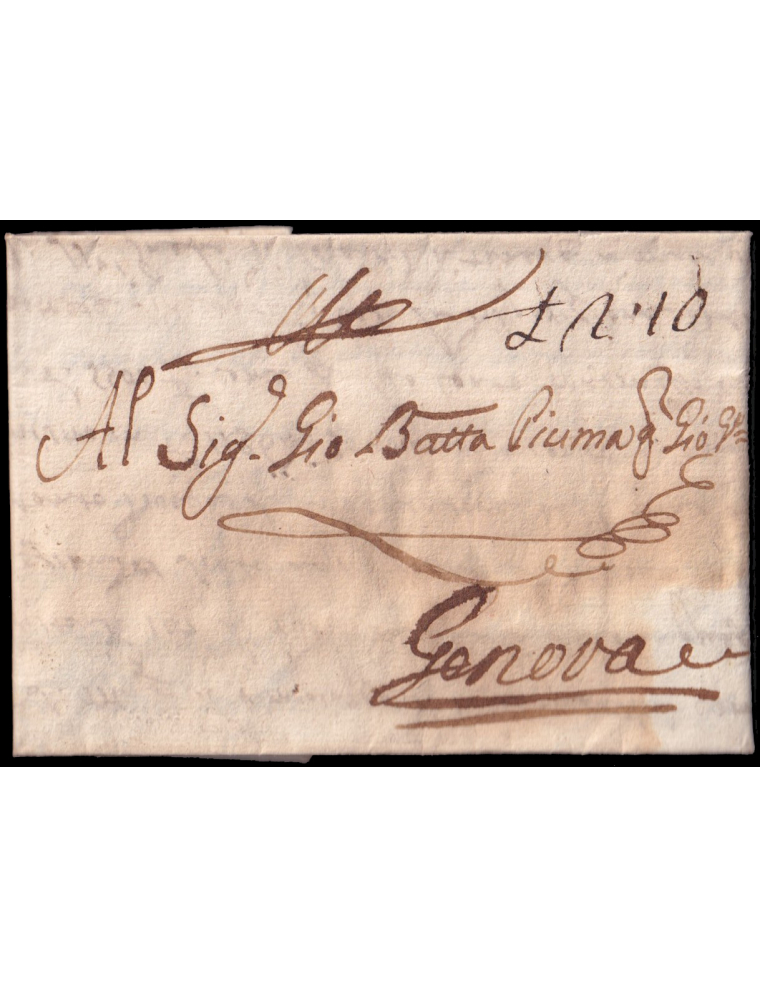 £ 2.10
Al Sig.r Gio Batta Piuma q. Gio
Genova